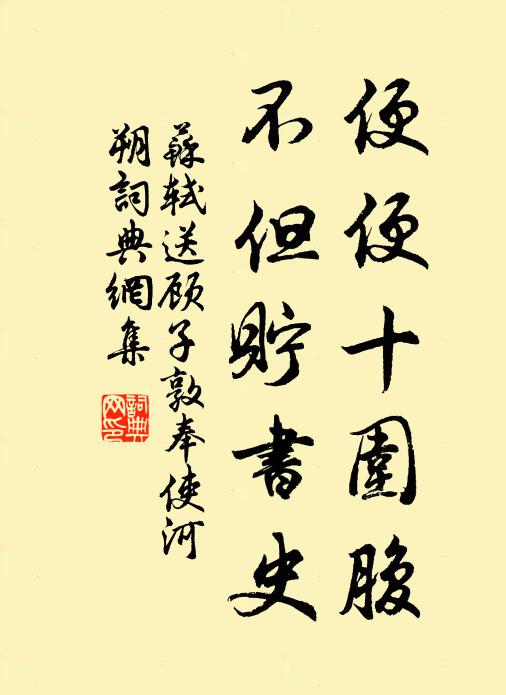 便便十圍腹
不但貯書史
蘇軾送顾子敦奉使河
朔詞典網集
詞典
网印